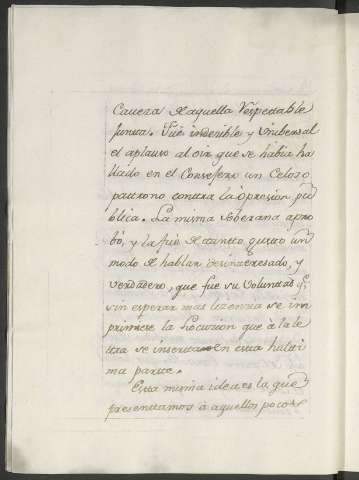 Caveza de aquella Respectable
Junta. Fué indecible y Unibersal
el aplauso al oir que se habia ha
llado en el Consejero un Celoso
patrono contra la opresion pu
blica. La misma Soberana apro
bó, y la
modo de hablar desinteresado, y
verdadero, que fue su Voluntad q.e
sin esperar mas licencia se im
primiese la Locucion que à la le
tra se inserta en esta hulti
ma parte.
Esta misma idea es la que
presentamos à aquellos pocos